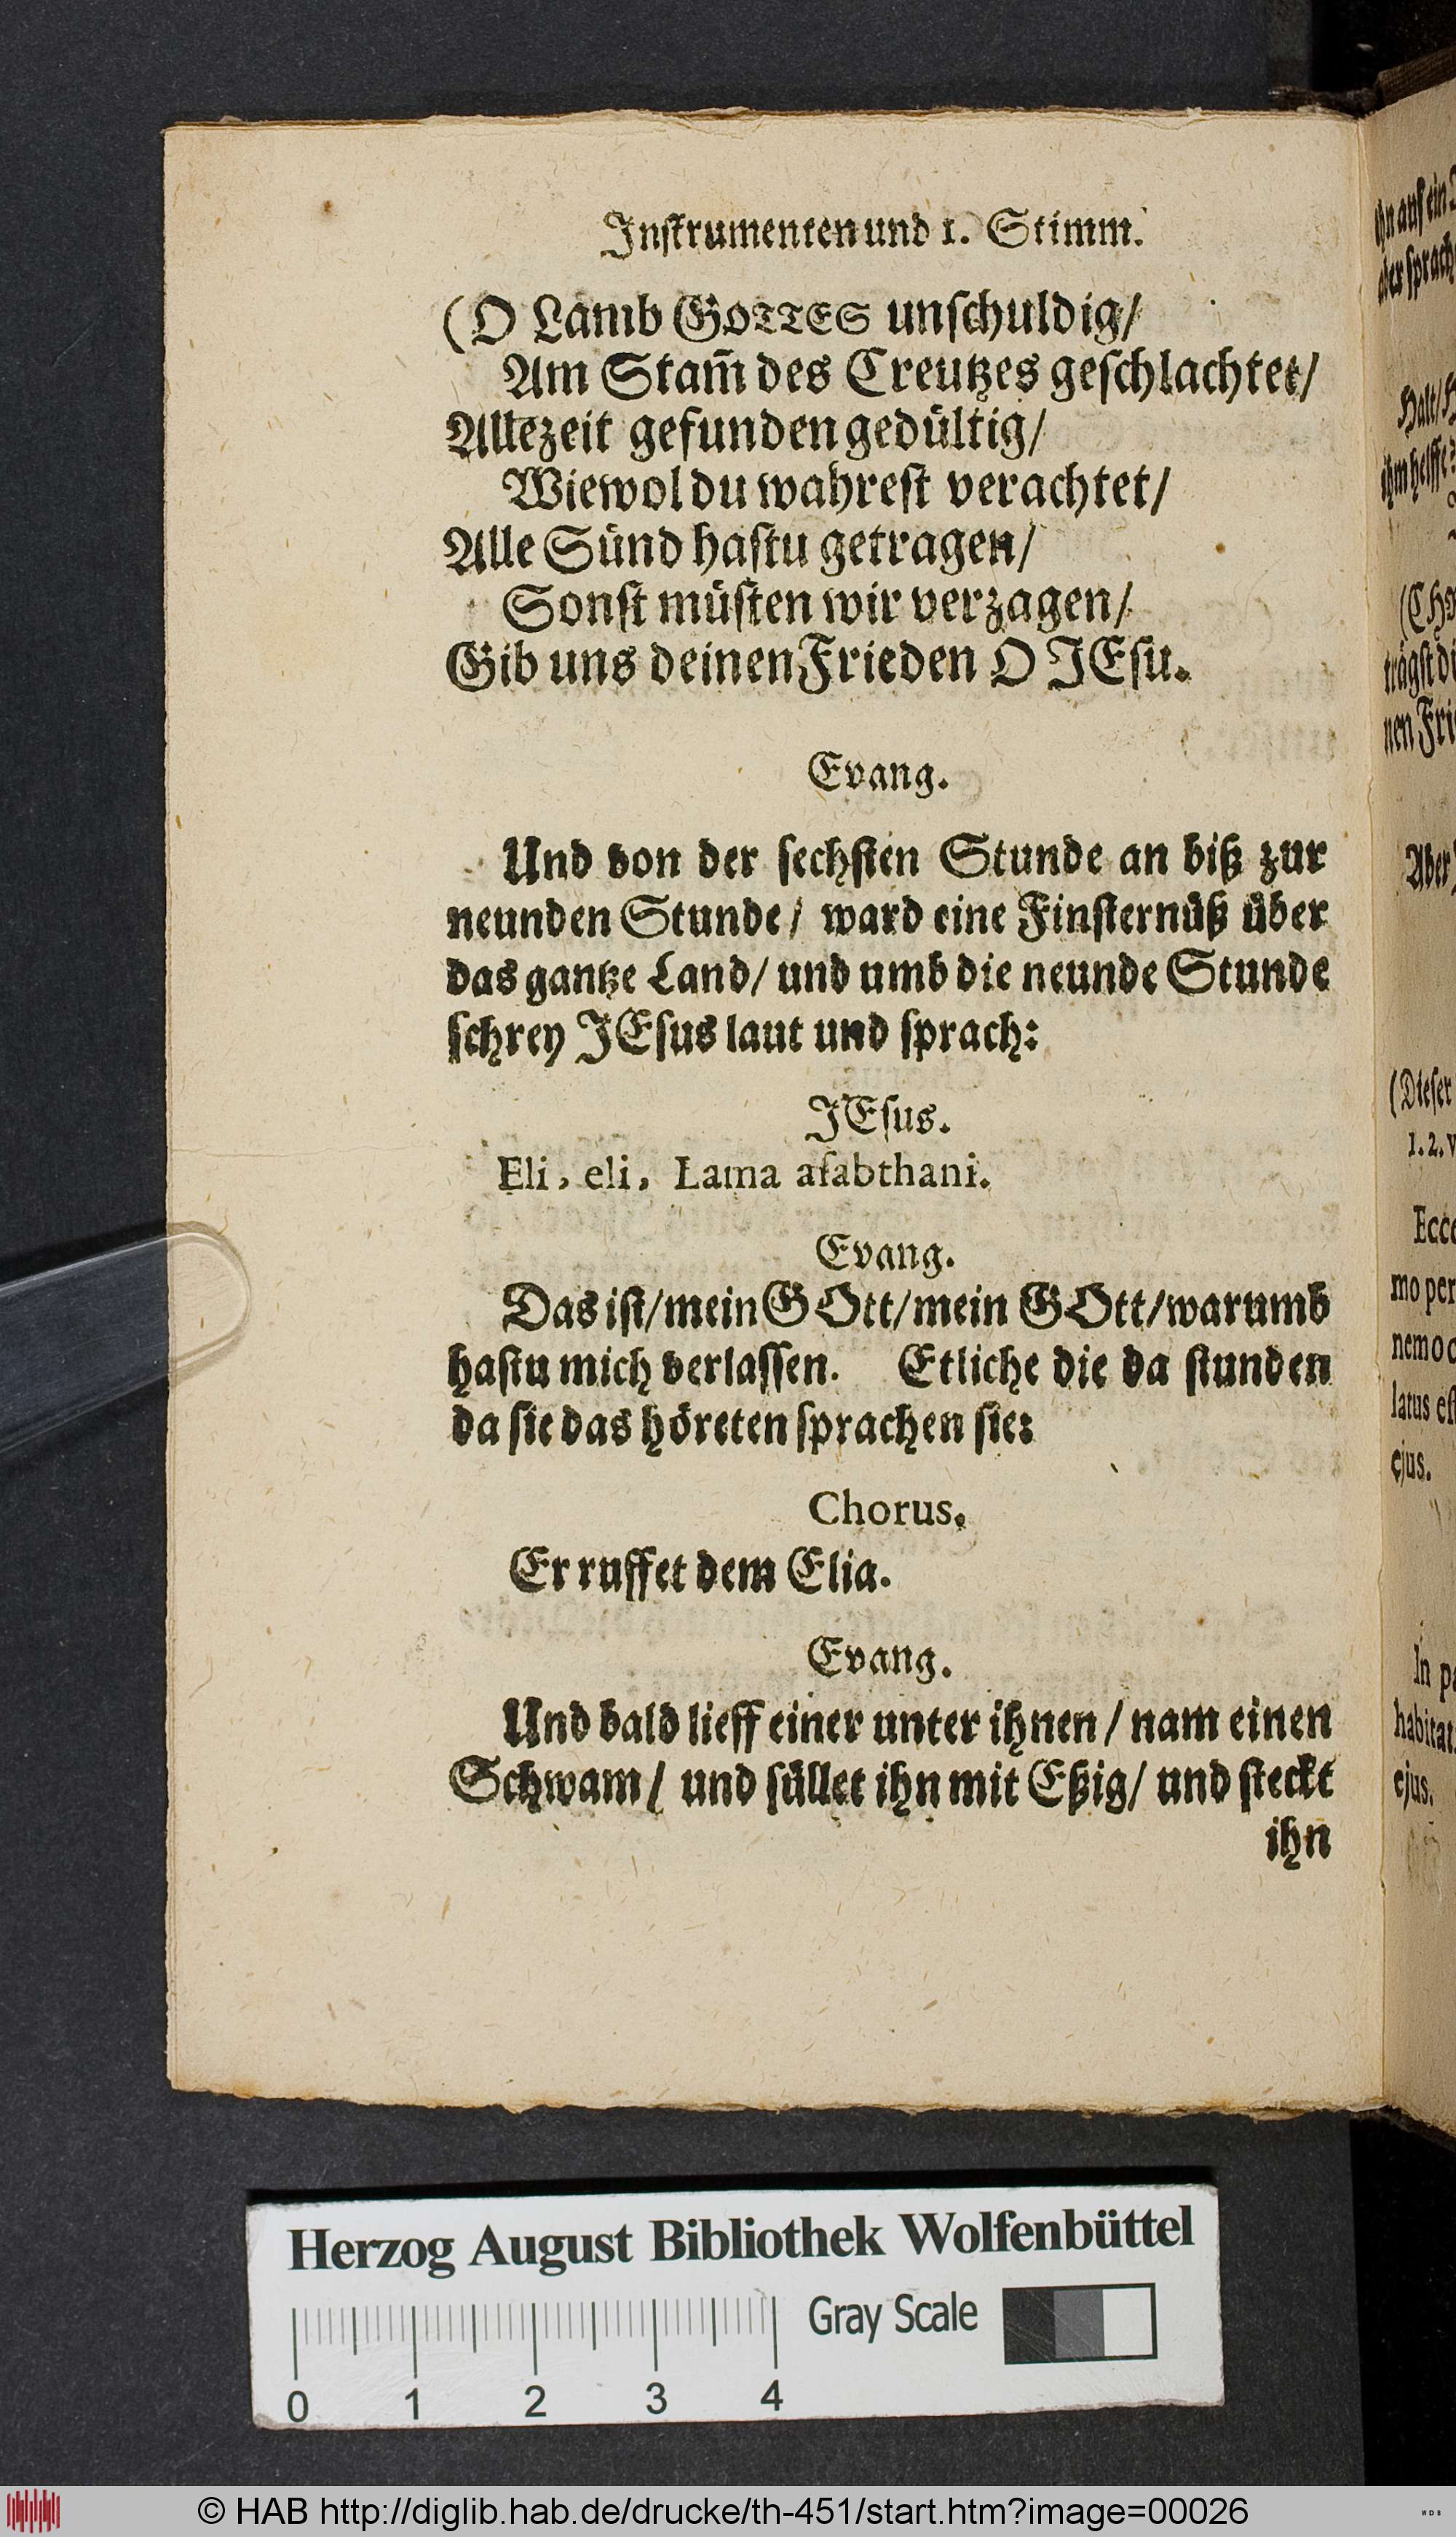 Inſtrumenten und 1. Stimm.
(O Lamb GOTTES unſchuldig/
Am Stam̃ des Creutzes geſchlachtet/
Allezeit gefunden gedültig/
Wiewol du wahreſt verachtet/
Alle Sünd haſtu getragen/
Sonſt müſten wir verzagen/
Gib uns deinen Frieden O JEſu.
Evang.
Und von der ſechſten Stunde an biß zur
neunden Stunde/ ward eine Finſternüß über
das gantze Land/ und umb die neunde Stunde
ſchrey JEſus laut und ſprach:
JEſus.
Eli, eli, Lama aſabthani.
Evang.
Das iſt/mein GOtt/mein GOtt/warumb
haſtu mich verlaſſen. Etliche die da ſtunden
da ſie das höreten ſprachen ſie:
Chorus.
Er ruffet dem Elia.
Evang.
Und bald lieff einer unter ihnen/ nam einen
Schwam/ und füllet ihn mit Eßig/ und ſteckt
ihn
ihn auf ein
der ſprach
Halt/
ihm helffe
(Chr
trägſt di
nen Fri
Aber
(Dieſer
1. 2. v
Ecce
mo per
nemo c
latus eſt
ejus.
In pa
habitat
ejus.
Herzog August Bibliothek Wolfenbüttel
Gray Scale
0 1 2 3 4
© HAB http://diglib.hab.de/drucke/th-451/start.htm?image=00026
WDB